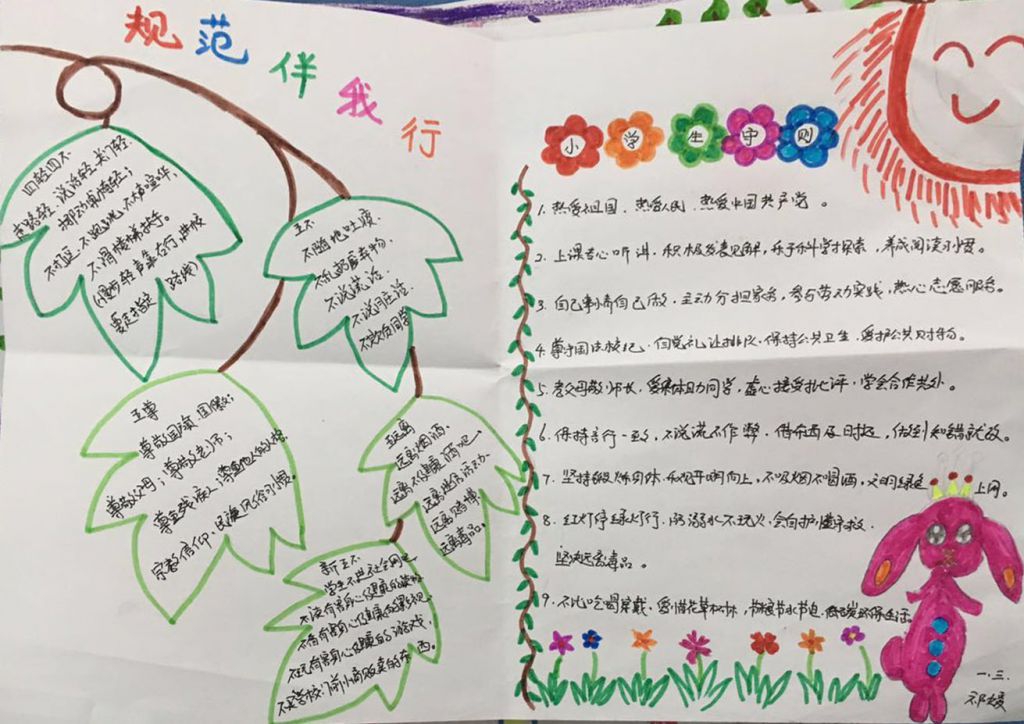 规范伴我行
四轻四不
走路轻、说话轻、关门轻、
挪动桌椅轻；
不打逗、不跑跳、不大声喧华、
不滑楼梯扶手。
(慢步轻声靠右行,进校
要走指定路线)
五不
不随地吐痰
不乱扔废弃物、
不说谎话、
不说脏话、
不欺负同学
五尊
尊敬国旗、国徽；
尊敬父母；尊敬老师；
尊重残疾人；尊重他人的人格、
宗教信仰、民族风俗习惯。
五远离
远离烟酒、
远离不健康酒吧、
远离迷信活动、
远离赌博、
远离毒品。
新五不
学生不进社会网吧
不读有害身心健康的读物
不看有害身心健康的影视、
不玩有害身心健康的游戏、
不买学校门前小商贩卖的东西。
小学生守则
1、热爱祖国、热爱人民、热爱中国共产党。
2、上课专心听讲、积极发表见解、乐于科学探索、养成阅读习惯。
3、自己事情自己做、主动分担家务、参与劳动实践、热心志愿服务。
4、尊守国法校纪、自觉礼让排队、保持公共卫生、爱护公共财物。
5、孝父母敬师长、爱集体助同学、虚心接受批评、学会合作共处。
6、保持言行一致、不说谎不作弊、借东西及时还、做到知错就改。
7、坚持锻炼身体、乐观开朗向上、不吸烟不喝酒、文明绿色上网。
8、红灯停绿灯行、防溺水不玩火、会自护懂求救、
坚决远离毒品。
9、不比吃喝穿戴、爱惜花草树木、节粮节水节电、低碳环保生活。
一.三.